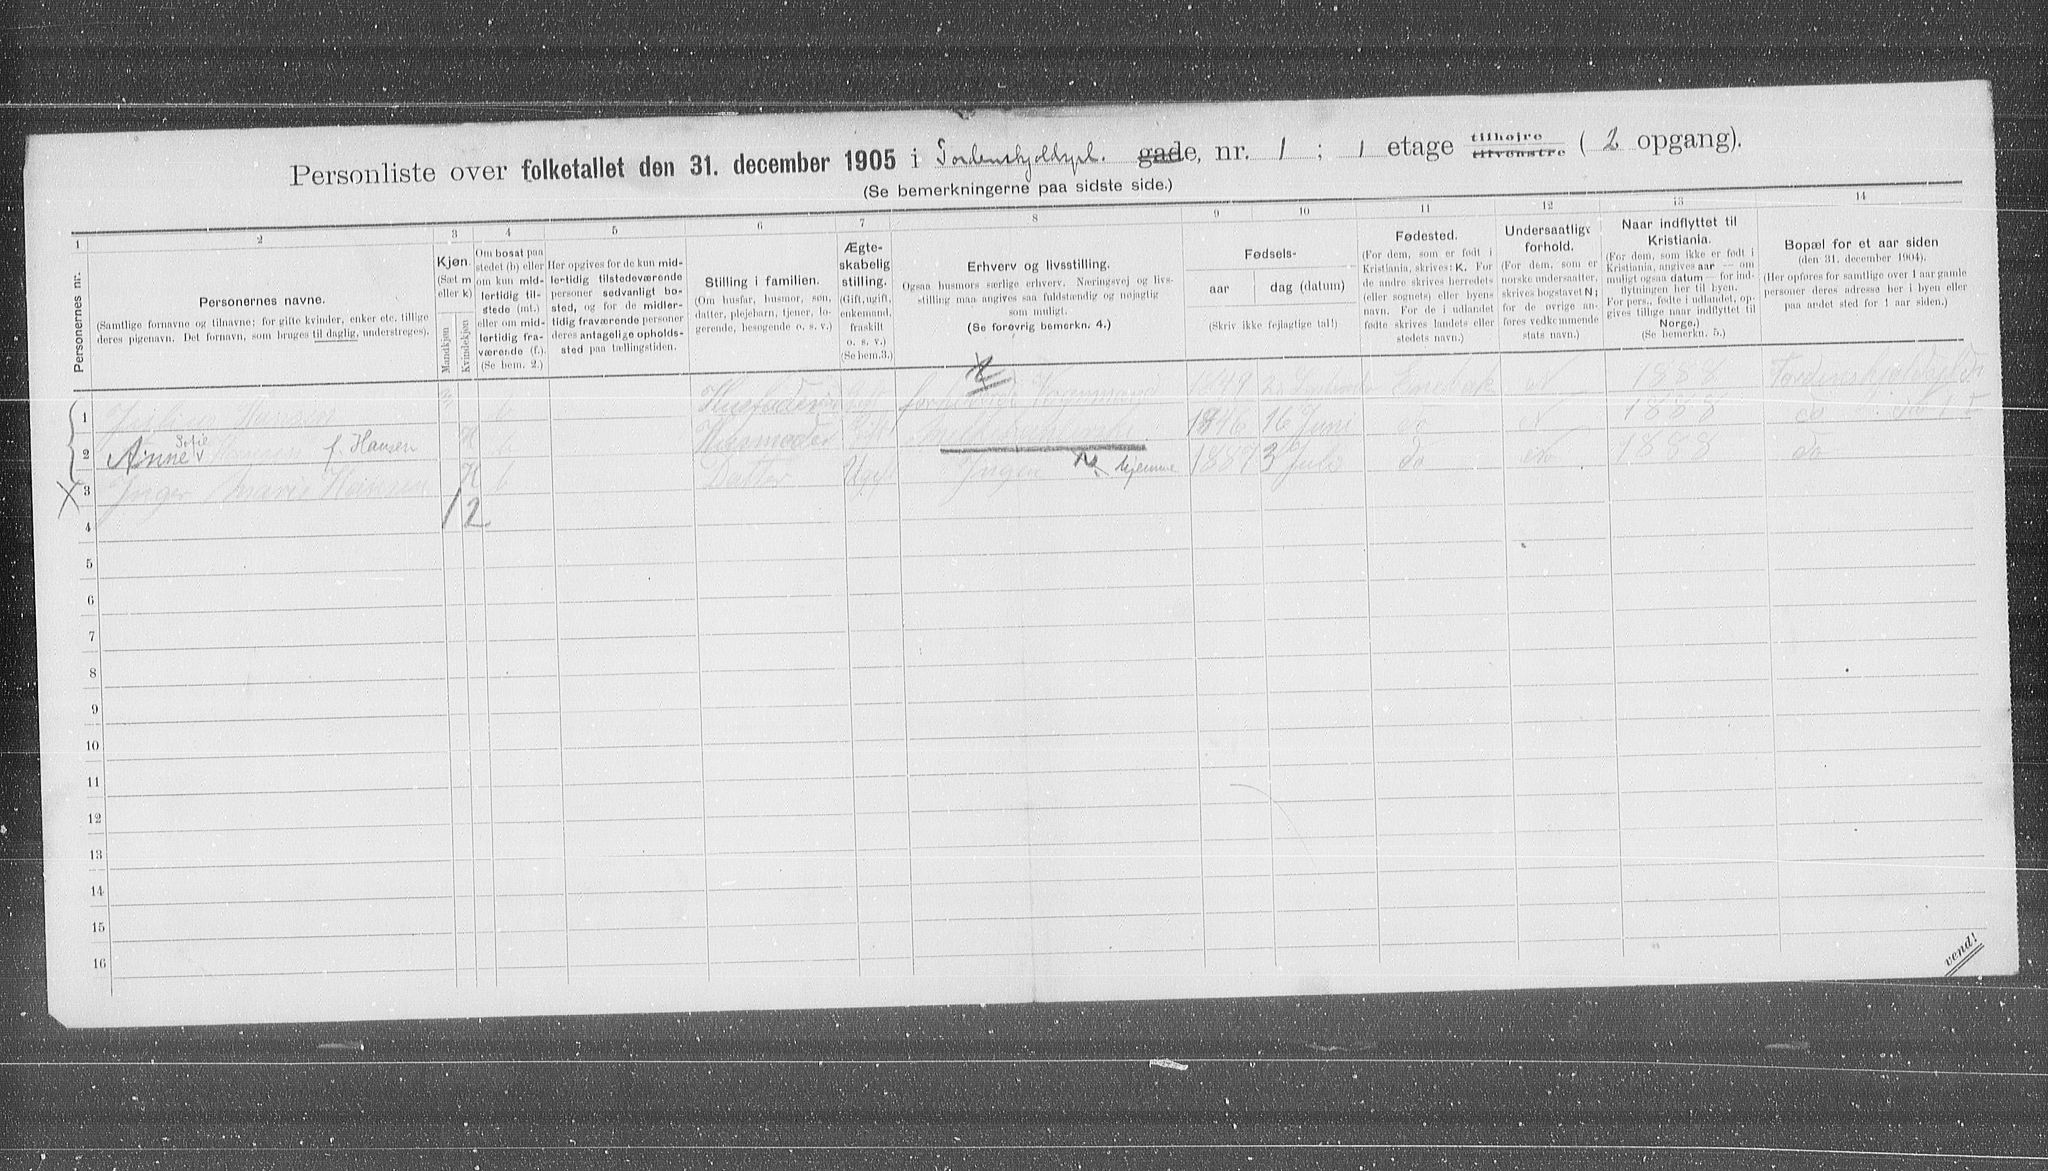 Personliste over folketallet den 31. december 1905 i Tordenskjoldspl. gade, nr. 1 ; 1 etage tilhøjre tilvenstre ( 2 opgang).
(Se bemerkningerne paa sidste side.)
1 2 3 4 5 6 7 8 9 10 11 12 13 14
Personernes nr.
Personernes navne.
(Samtlige fornavne og tilnavne; for gifte kvinder, enker etc. tillige
deres pigenavn. Det fornavn, som bruges til daglig, understreges).
Kjøn.
(Sæt m
eller k)
Mandkjøn
Kvindekjøn
Om bosat paa
stedet (b) eller
om kun mid-
lertidig til-
stede (mt.)
eller om mid-
lertidig fra-
værende (f.).
(Se bem. 2.)
Her opgives for de kun mid-
lertidig tilstedeværende
personer sedvanligt bo-
sted, og for de midler-
tidig fraværende personer
deres antagelige opholds-
sted paa tællingstiden.
Stilling i familien.
(Om husfar, husmor, søn,
datter, plejebarn, tjener, lo-
gerende, besøgende o. s. v.)
Ægte-
skabelig
stilling.
(Gift, ugift,
enkemand,
fraskilt
o. s. v.)
(Se bem.3.)
Erhverv og livsstilling.
Ogsaa husmors særlige erhverv. Næringsvej og livs-
stilling maa angives saa fuldstændig og nøjagtig
som muligt.
(Se forøvrig bemerkn. 4.)
Fødsels-
aar dag (datum)
(Skriv ikke fejlagtige tal!)
Fødested.
(For dem, som er født i
Kristiania, skrives: K. For
de andre skrives herredets
(eller sognets) eller byens
navn. For de i udlandet
fødte skrives landets eller
stedets navn.)
Undersaatligt
forhold.
(For dem, som er
norske undersaatter,
skrives bogstavet N;
for de øvrige an-
føres vedkommende
stats navn.)
Naar indflyttet til
Kristiania.
(For dem, som ikke er født i
Kristiania, angives aar — om
muligt ogsaa datum — for ind-
flytningen her til byen.
For pers., fødte i udlandet, op-
gives tillige naar indflyttet til
Norge.)
(Se bemerkn. 5.)
Bopæl for et aar siden
(den 31. december 1904).
(Her opføres for samtlige over 1 aar gamle
personer deres adresse her i byen eller
paa andet sted for 1 aar siden.)
1 Hansen m b Husfader Gift 1849 N 1888
2 Anne Sofie Hansen f. Hansen K b Husmoder Gift 1846 16 Juni do N 1888 do
3 Inger Marie Hansen K b Datter Ugift Ingen hjemme 1887 3 Juli do N 1888 do
1 2
4
5
6
7
8
9
10
11
12
13
14
15
16
vend!